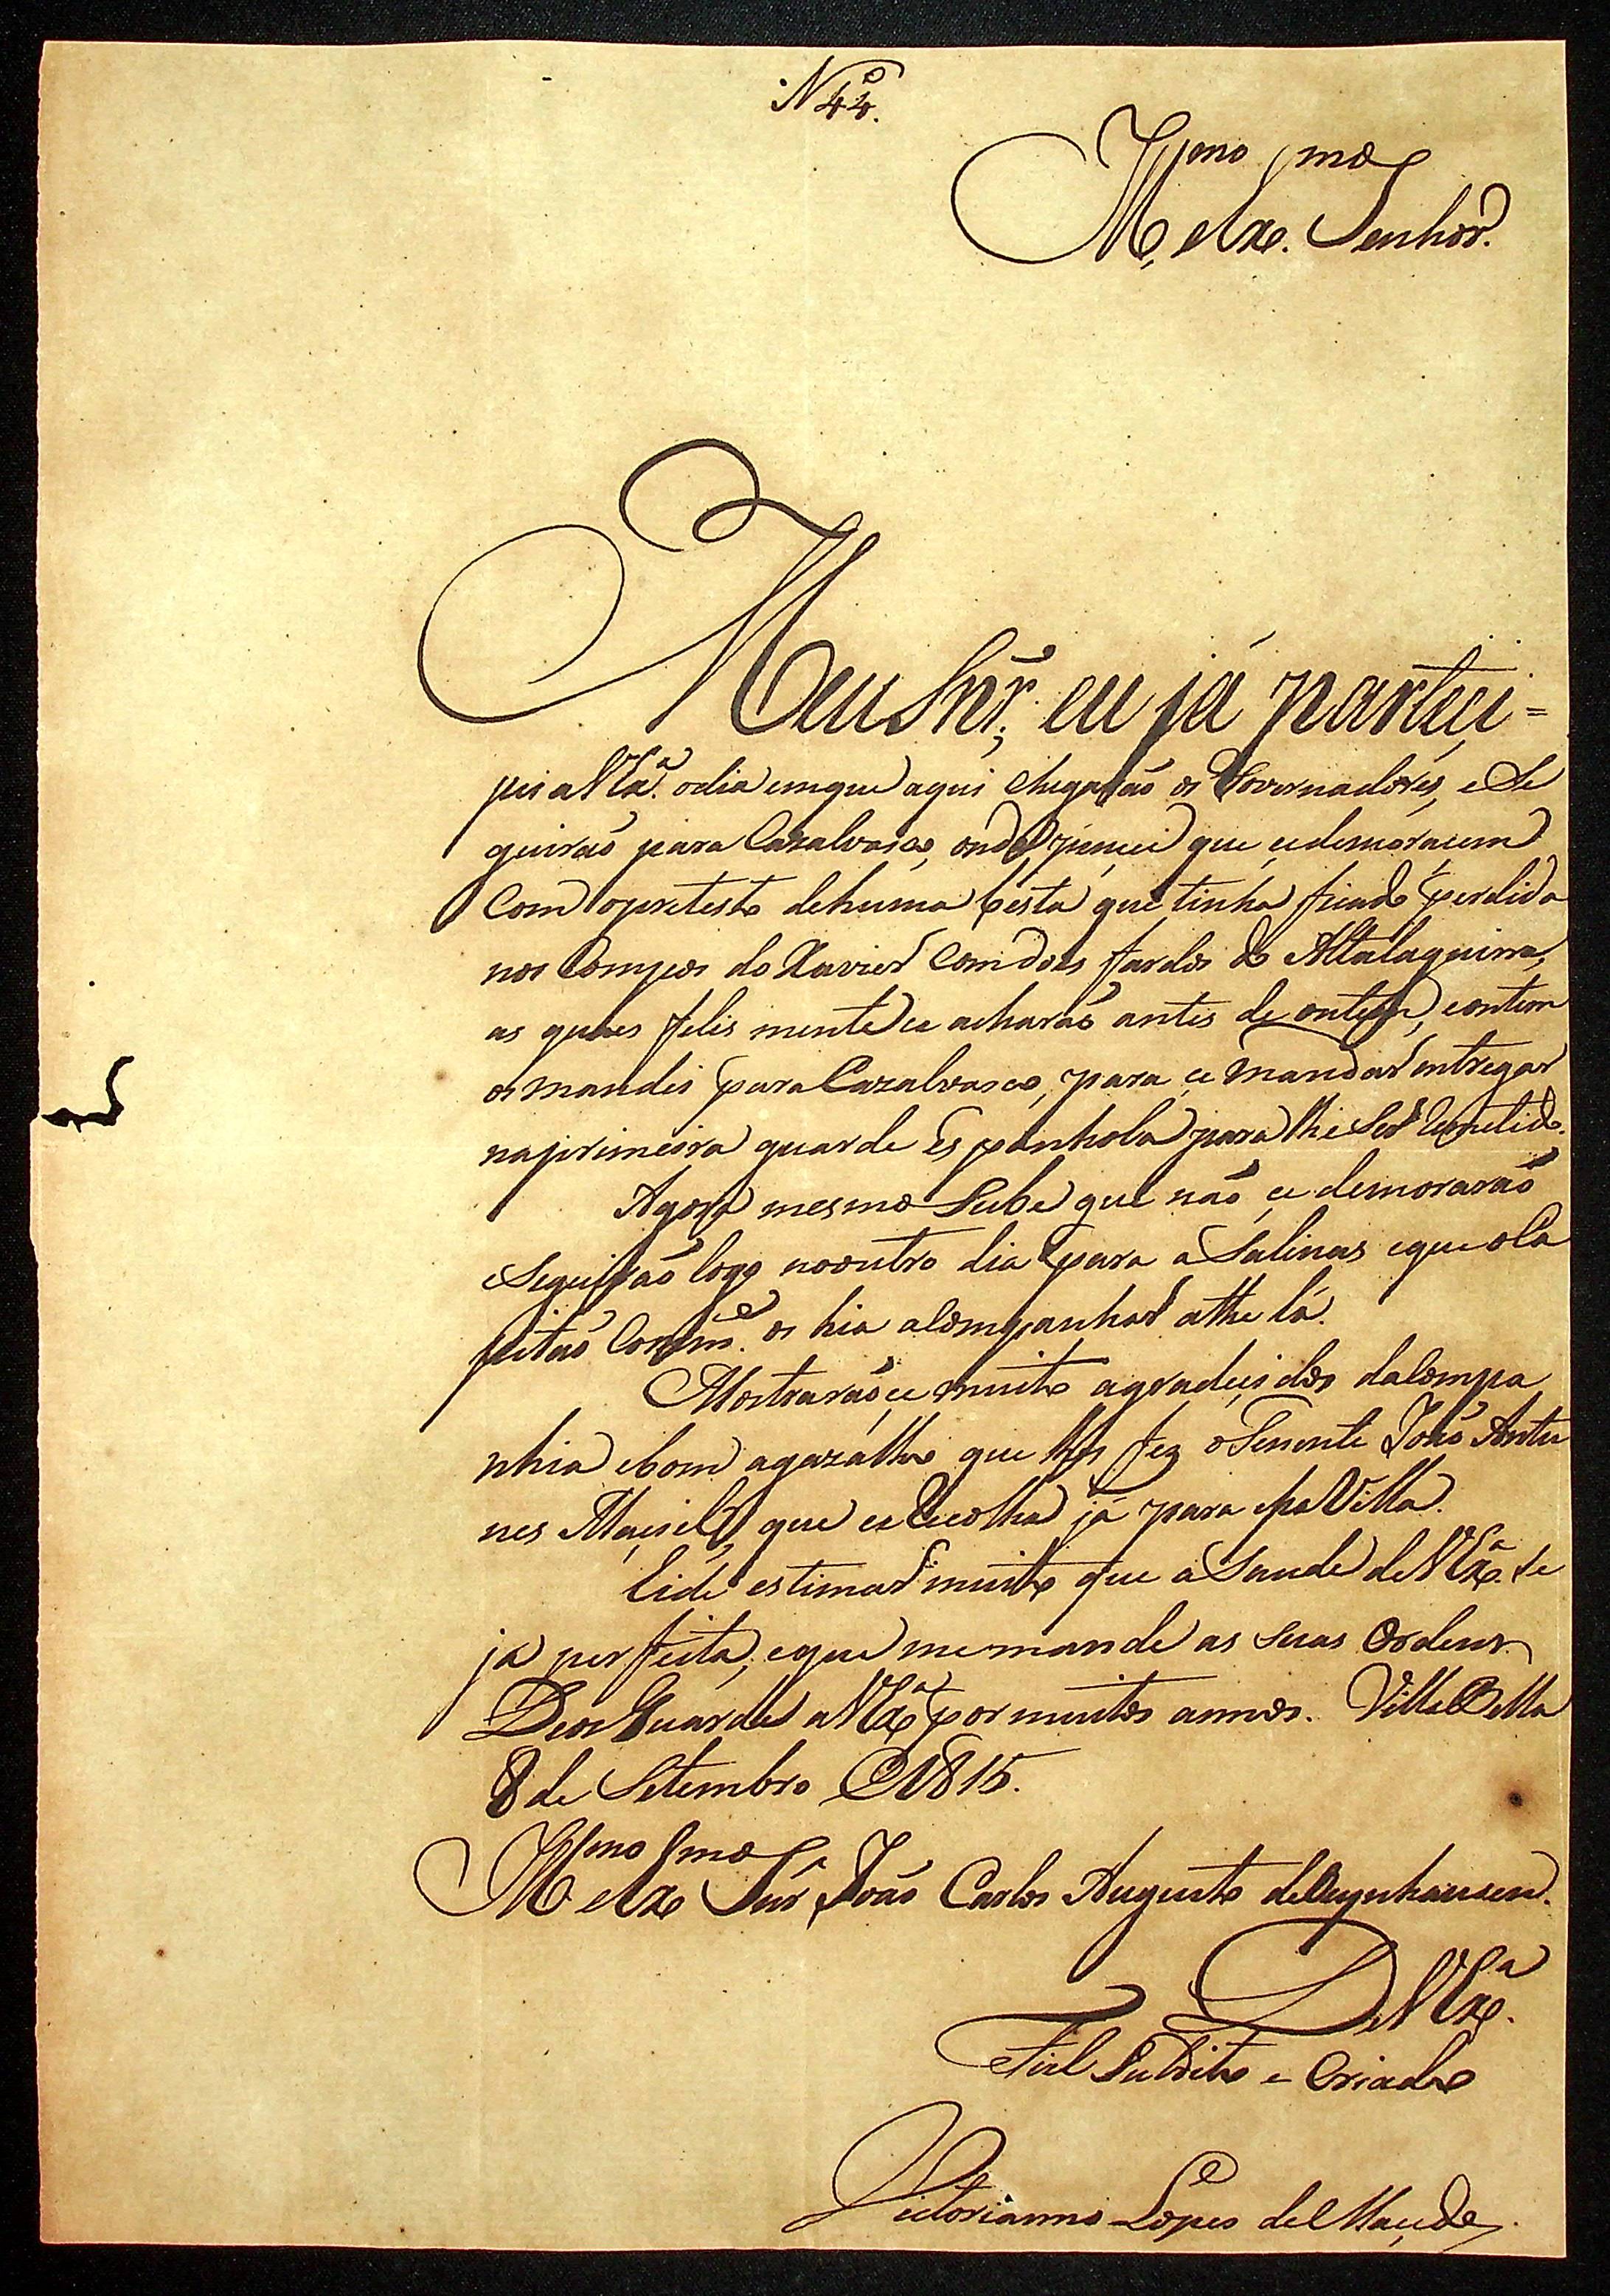 N.º 44.
Ill.mo e Ex.mo Senhor.
Meu Snr.; eu já partici=
pei a VEx.ª o dia em que aqui chegarão os Governadores, e Se
guirão para Cazalvasco, onde pençei que çe demoraçem
Com o pretesto de huma besta que tinha ficado perdida
nos Campos do Xavier Com dois fardos de Altalaguirra,
as quaes felis mente çe acharão antes de ontem, e ontem
os mandei para Cazalvasco, para çe mandar entregar
na primeira guarda Espanhola para lhe Ser Remetido.
Agora mesmo Sube que não çe demorarão
e Seguirão logo no outro dia para a Salinas e que o Ca
pitão Comm.e os hia aCompanhar athe lá.
Mostrarãoçe muito agradeçidos da Compa
nhia e bom agazalho que lhes fez o Tenente João Antu
nes Maçiel, que çe Recolha já para essa Villa.
Eide estimar muito que a Saude de VEx.ª Se
ja perfeita, e que me mande as Suas Ordens.
Deos Guarde a VEx.ª por muitos annos. Villa Bella
8 de Setembro de 1815.
Ill.mo e Ex.mo Snr João Carlos Augusto de Oeynhausen.
De VEx.ª
Fiel Subdito e Criado
Victorianno Lopes de Maçedo.